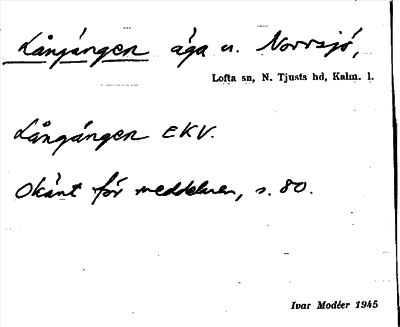 Långängen äga u. Norrsjö,
Lofta sn, N. Tjusts hd, Kalm. l.
Långängen EKV.
Okänt för meddelaren, s. 80.
Ivar Modéer 1945